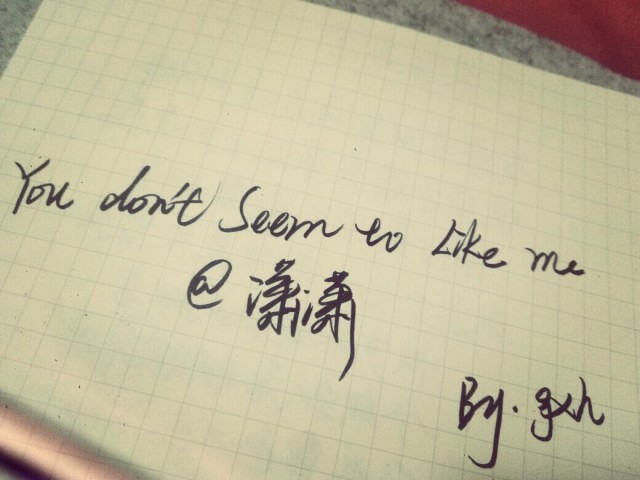 You don't seem to like me
@潇潇
By.